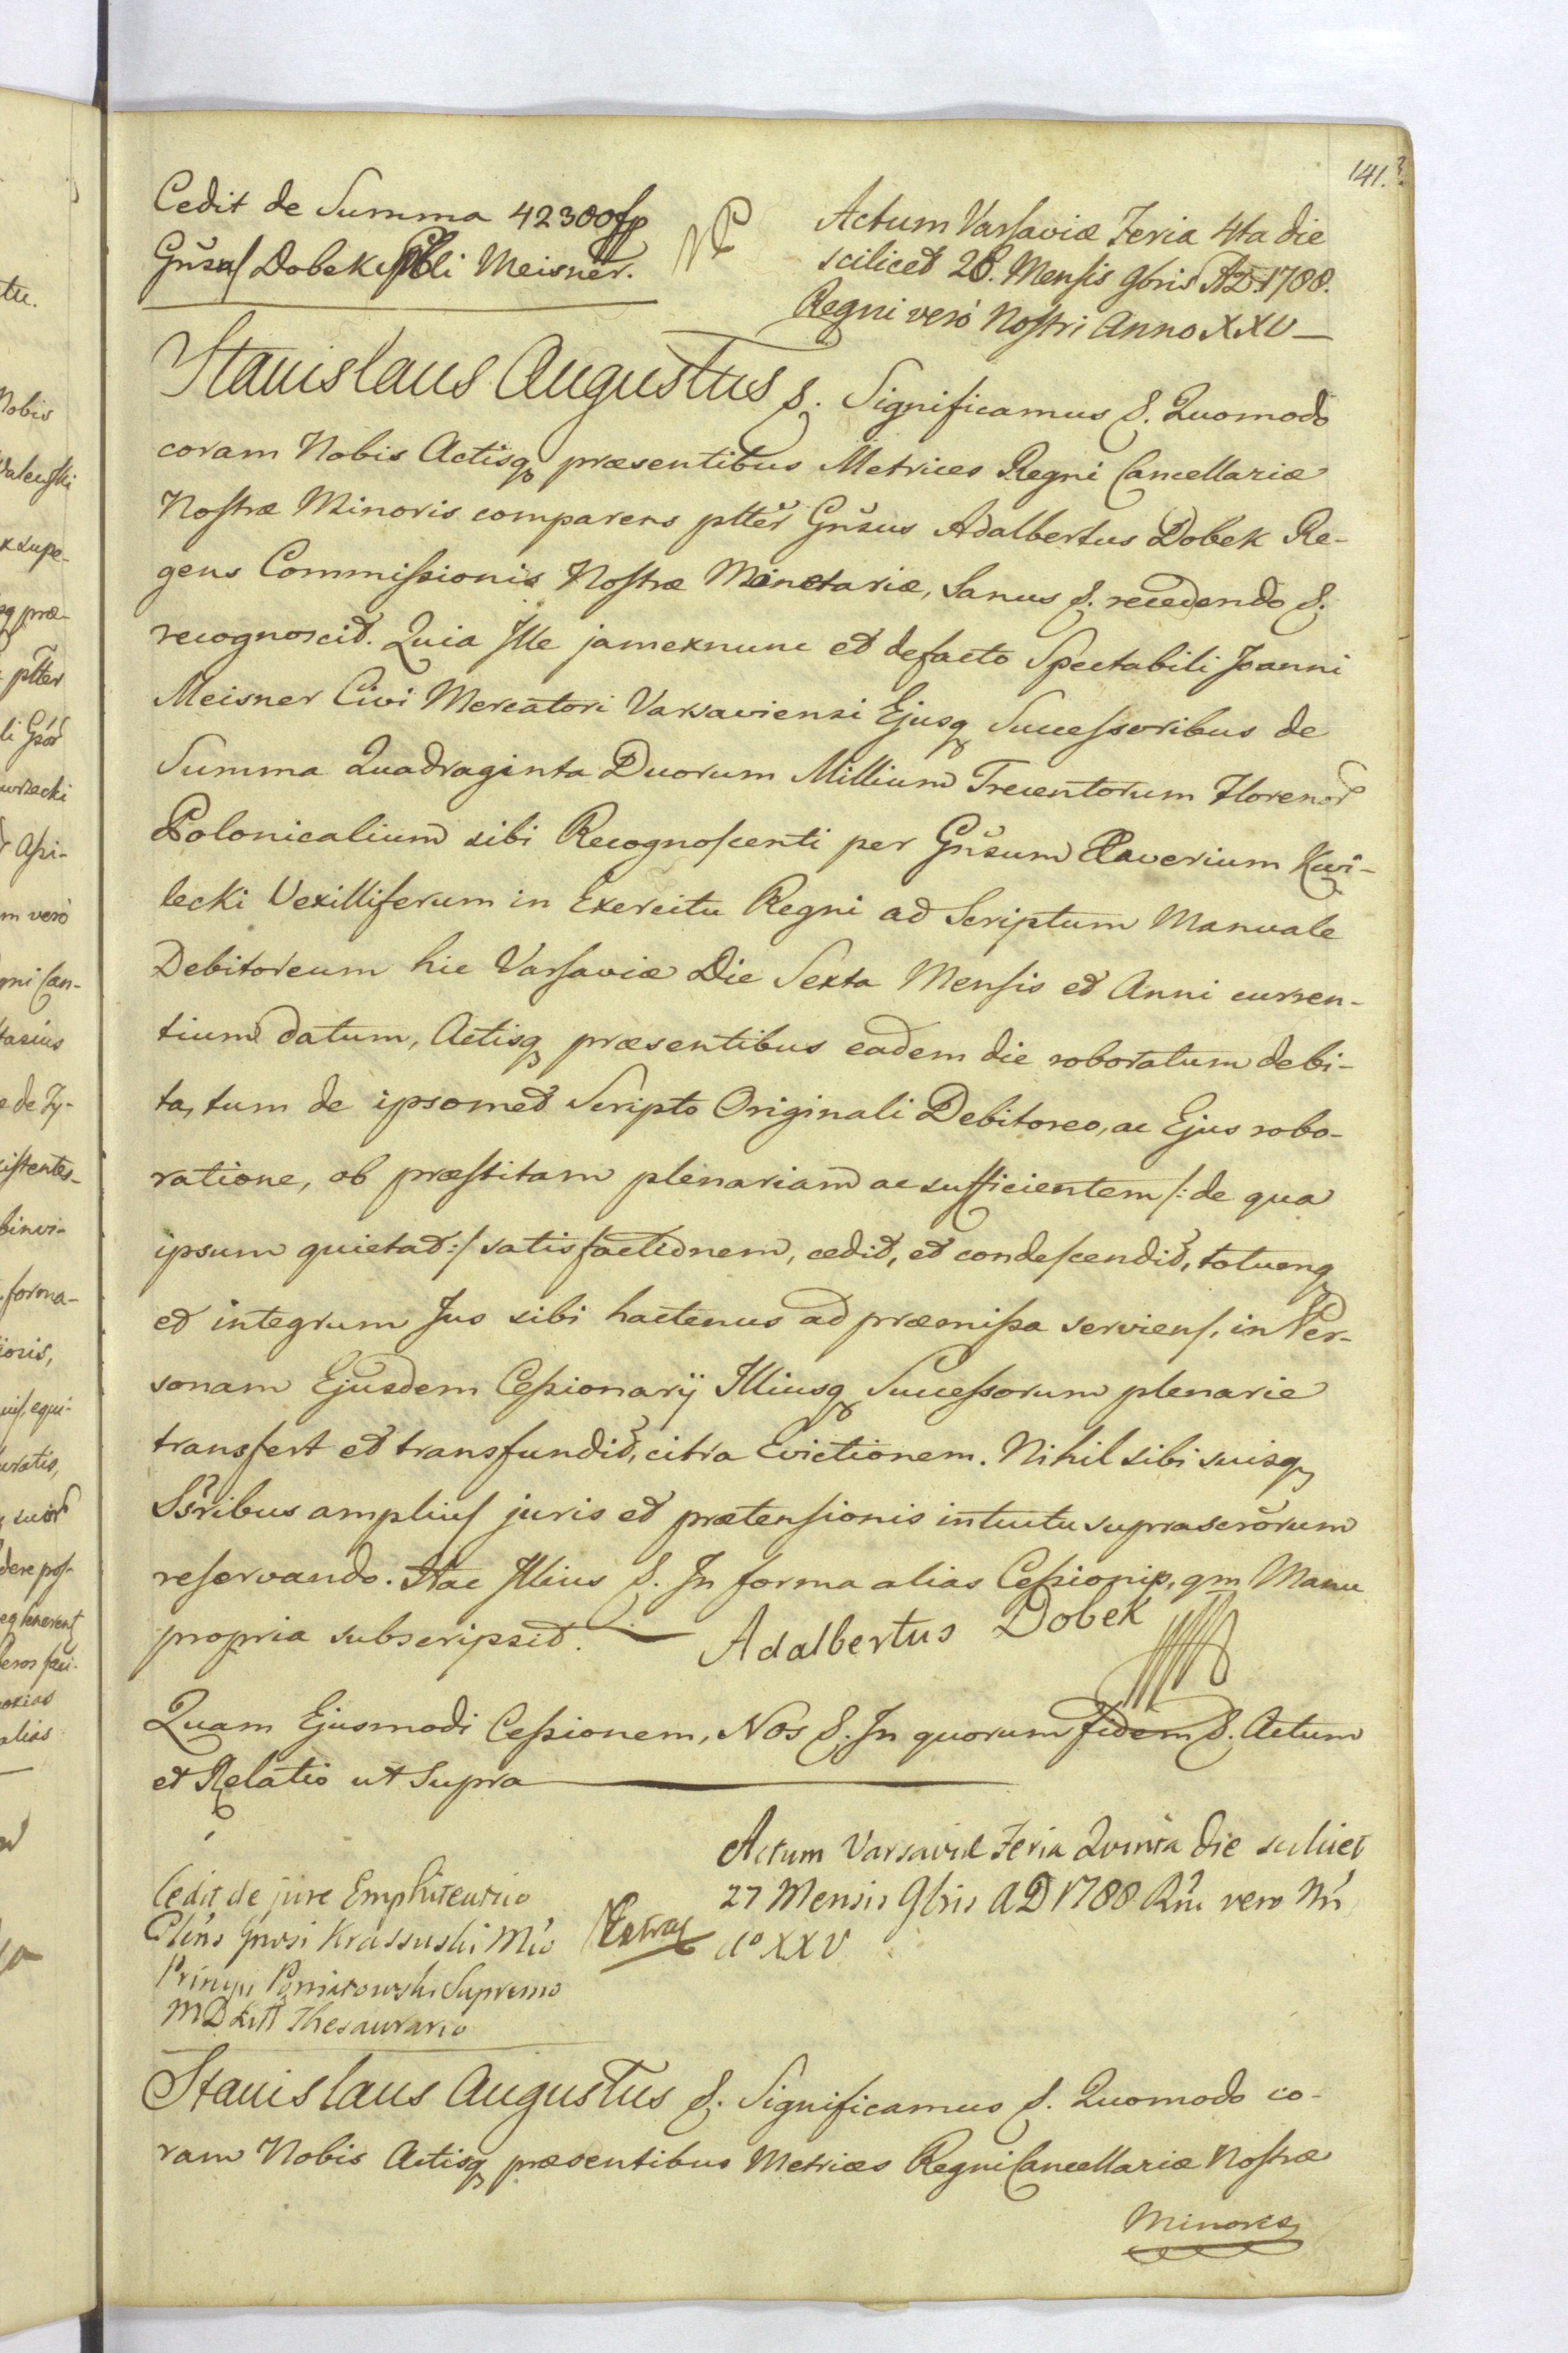 141.
Cedit de Summa 42300 fp
Gnsus Dobek Spbli Meisner.
NP
Actum Varsaviæ Feria 4ta die
scilicet 26. Mensis 9bris AD 1788.
Regni verò Nostri Anno XXV
Stanislaus Augustus &. Significamus &. Quomodo
coram Nobis Actisq præsentibus Metrices Regni Cancellariæ
Nostræ Minoris comparens pltter Gnsus Adalbertus Dobek Re-
gens Commissionis Nostræ Monetariæ, Sanus &. recedendo &.
recognoscit. Quia Ille jamexnunc et defacto Spectabili Joanni
Meisner Civi Mercatori Varsaviensi Ejusq Successoribus de
Summa Quadraginta Duorum Millium Trecentorum Florenor
Polonicalium sibi Recognoscenti per Gnsum Xaverium Kwi-
lecki Vexilliferum in Exercitu Regni ad Scriptum Manuale
Debitoreum hic Varsaviæ Die Sexta Mensis et Anni curren-
tium datum, Actisq præsentibus eadem die roboratum debi-
ta, tum de ipsomet Scripto Originali Debitoreo, ac Ejus robo-
ratione, ob præstitam plenariam ac sufficientem /: de qua
ipsum quietat :/ satisfactionem, cedit, et condescendit, totumq
et integrum Jus sibi hactenus ad præmissa serviens, in Per-
sonam Ejusdem Cessionarij Illiusq Successorum plenarie
transfert et transfundit, citra Evictionem. Nihil sibi suisq
Ssribus amplius juris et prætensionis intuitu suprascrorum
reservando. Hac Illius &. In forma alias Cessionis, qm Manu
propria subscripsit. Adalbertus Dobek
Quam Ejusmodi Cessionem, Nos &. In quorum fidem &. Actum
et Relatio ut Supra
Actum Varsaviæ Feria Quinta die scilicet
27 Mensis 9bris AD 1788 Rni vero Nri
Ao XXV
Cedit de jure Emphiteutico
Gnosi Krassuski
Extrad
Principi Poniatowski Supremo
MD Litt Thesaurario
Stanislaus Augustus &. Significamus &. Quomodo co-
ram Nobis Actisq præsentibus Metrices Regni Cancellariæ Nostræ
Minoris